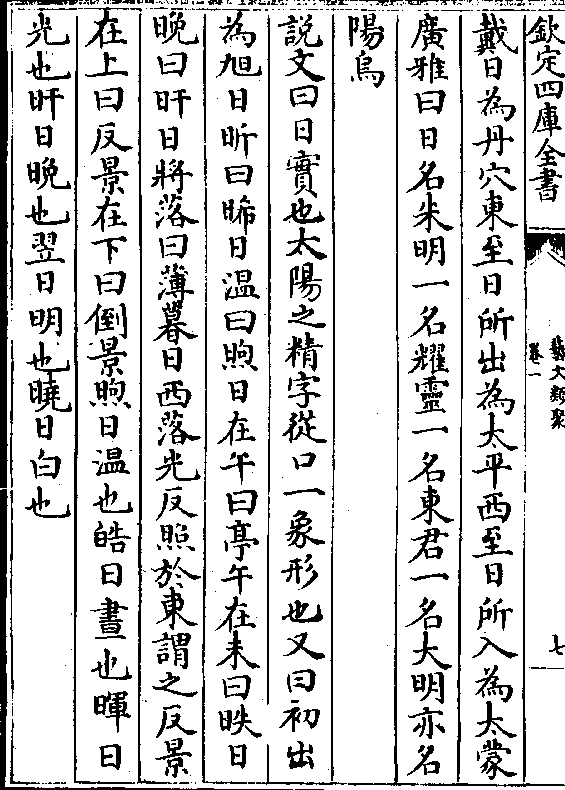 欽定四庫全書
藝文類聚
卷一
七
戴日為丹穴東至日所出為太平西至日所入為太蒙
廣雅曰日名朱明一名耀靈一名東君一名大明亦名
陽烏
説文曰日實也太陽之精字從口一象形也又曰初出
為旭日昕曰晞日温曰煦日在午曰亭午在未曰昳日
晚曰旰日將落曰薄暮日西落光反照於東謂之反景
在上曰反景在下曰倒景煦日温也皓日晝也暉日
光也旰日晚也翌日明也曉日白也